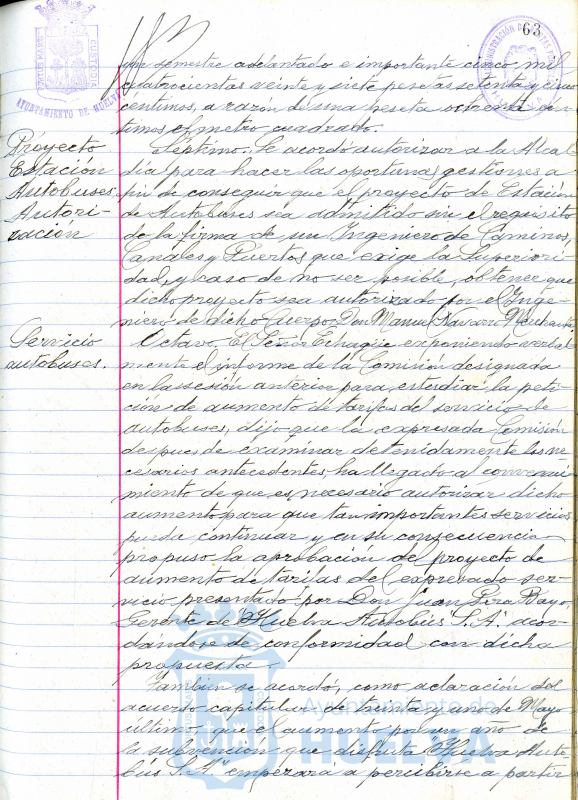 63
AYUNTAMIENTO DE HUELVA
por semestre adelantado e importante cinco mil
cuatrocientas veinte y siete pesetas setenta y cinco
centimos, a razón de una peseta ochenta cen-
timos el metro cuadrado.
Proyecto
Estación
Autobuses.
Autori-
zación
Septimo. Se acordó autorizar a la Alcal-
día para hacer las oportunas gestiones a
fin de conseguir que el proyecto de Estación
de Autobuses sea admitido sin el requisito
de la firma de un Ingeniero de Caminos,
Canales y Puertos que exige la Superiori-
dad, y caso de no ser posible, obtener que
dicho proyecto sea autorizado por el Inge-
niero de dicho Cuerpo, Don Manuel Navarro
Servicio
autobuses.
Octavo. El Señor Echagüe exponiendo verbal-
mente el informe de la Comisión designada
en la sesión anterior para estudiar la peti-
ción de aumento de tarifas del servicio de
autobuses, dijo que la expresada Comisión
despues de examinar detenidamente los ne-
cesarios antecedentes, ha llegado al convenci-
miento de que es necesario autorizar dicho
aumento para que tan importantes servicios
pueda continuar y en su consecuencia
propuso la aprobación del proyecto de
aumento de tarifas del expresado ser-
vicio presentado por Don Juan
Gerente de "Huelva Autobús S.A." acor-
dandose de conformidad con dicha
propuesta.
Tambien se acordó, como aclaración del
acuerdo capitular de treinta y uno de Mayo
último, que el aumento por un año de
la subvención que disfruta "Huelva Auto-
bús S.A." empezará a percibirse a partir
Ayuntamiento de
HUELVA